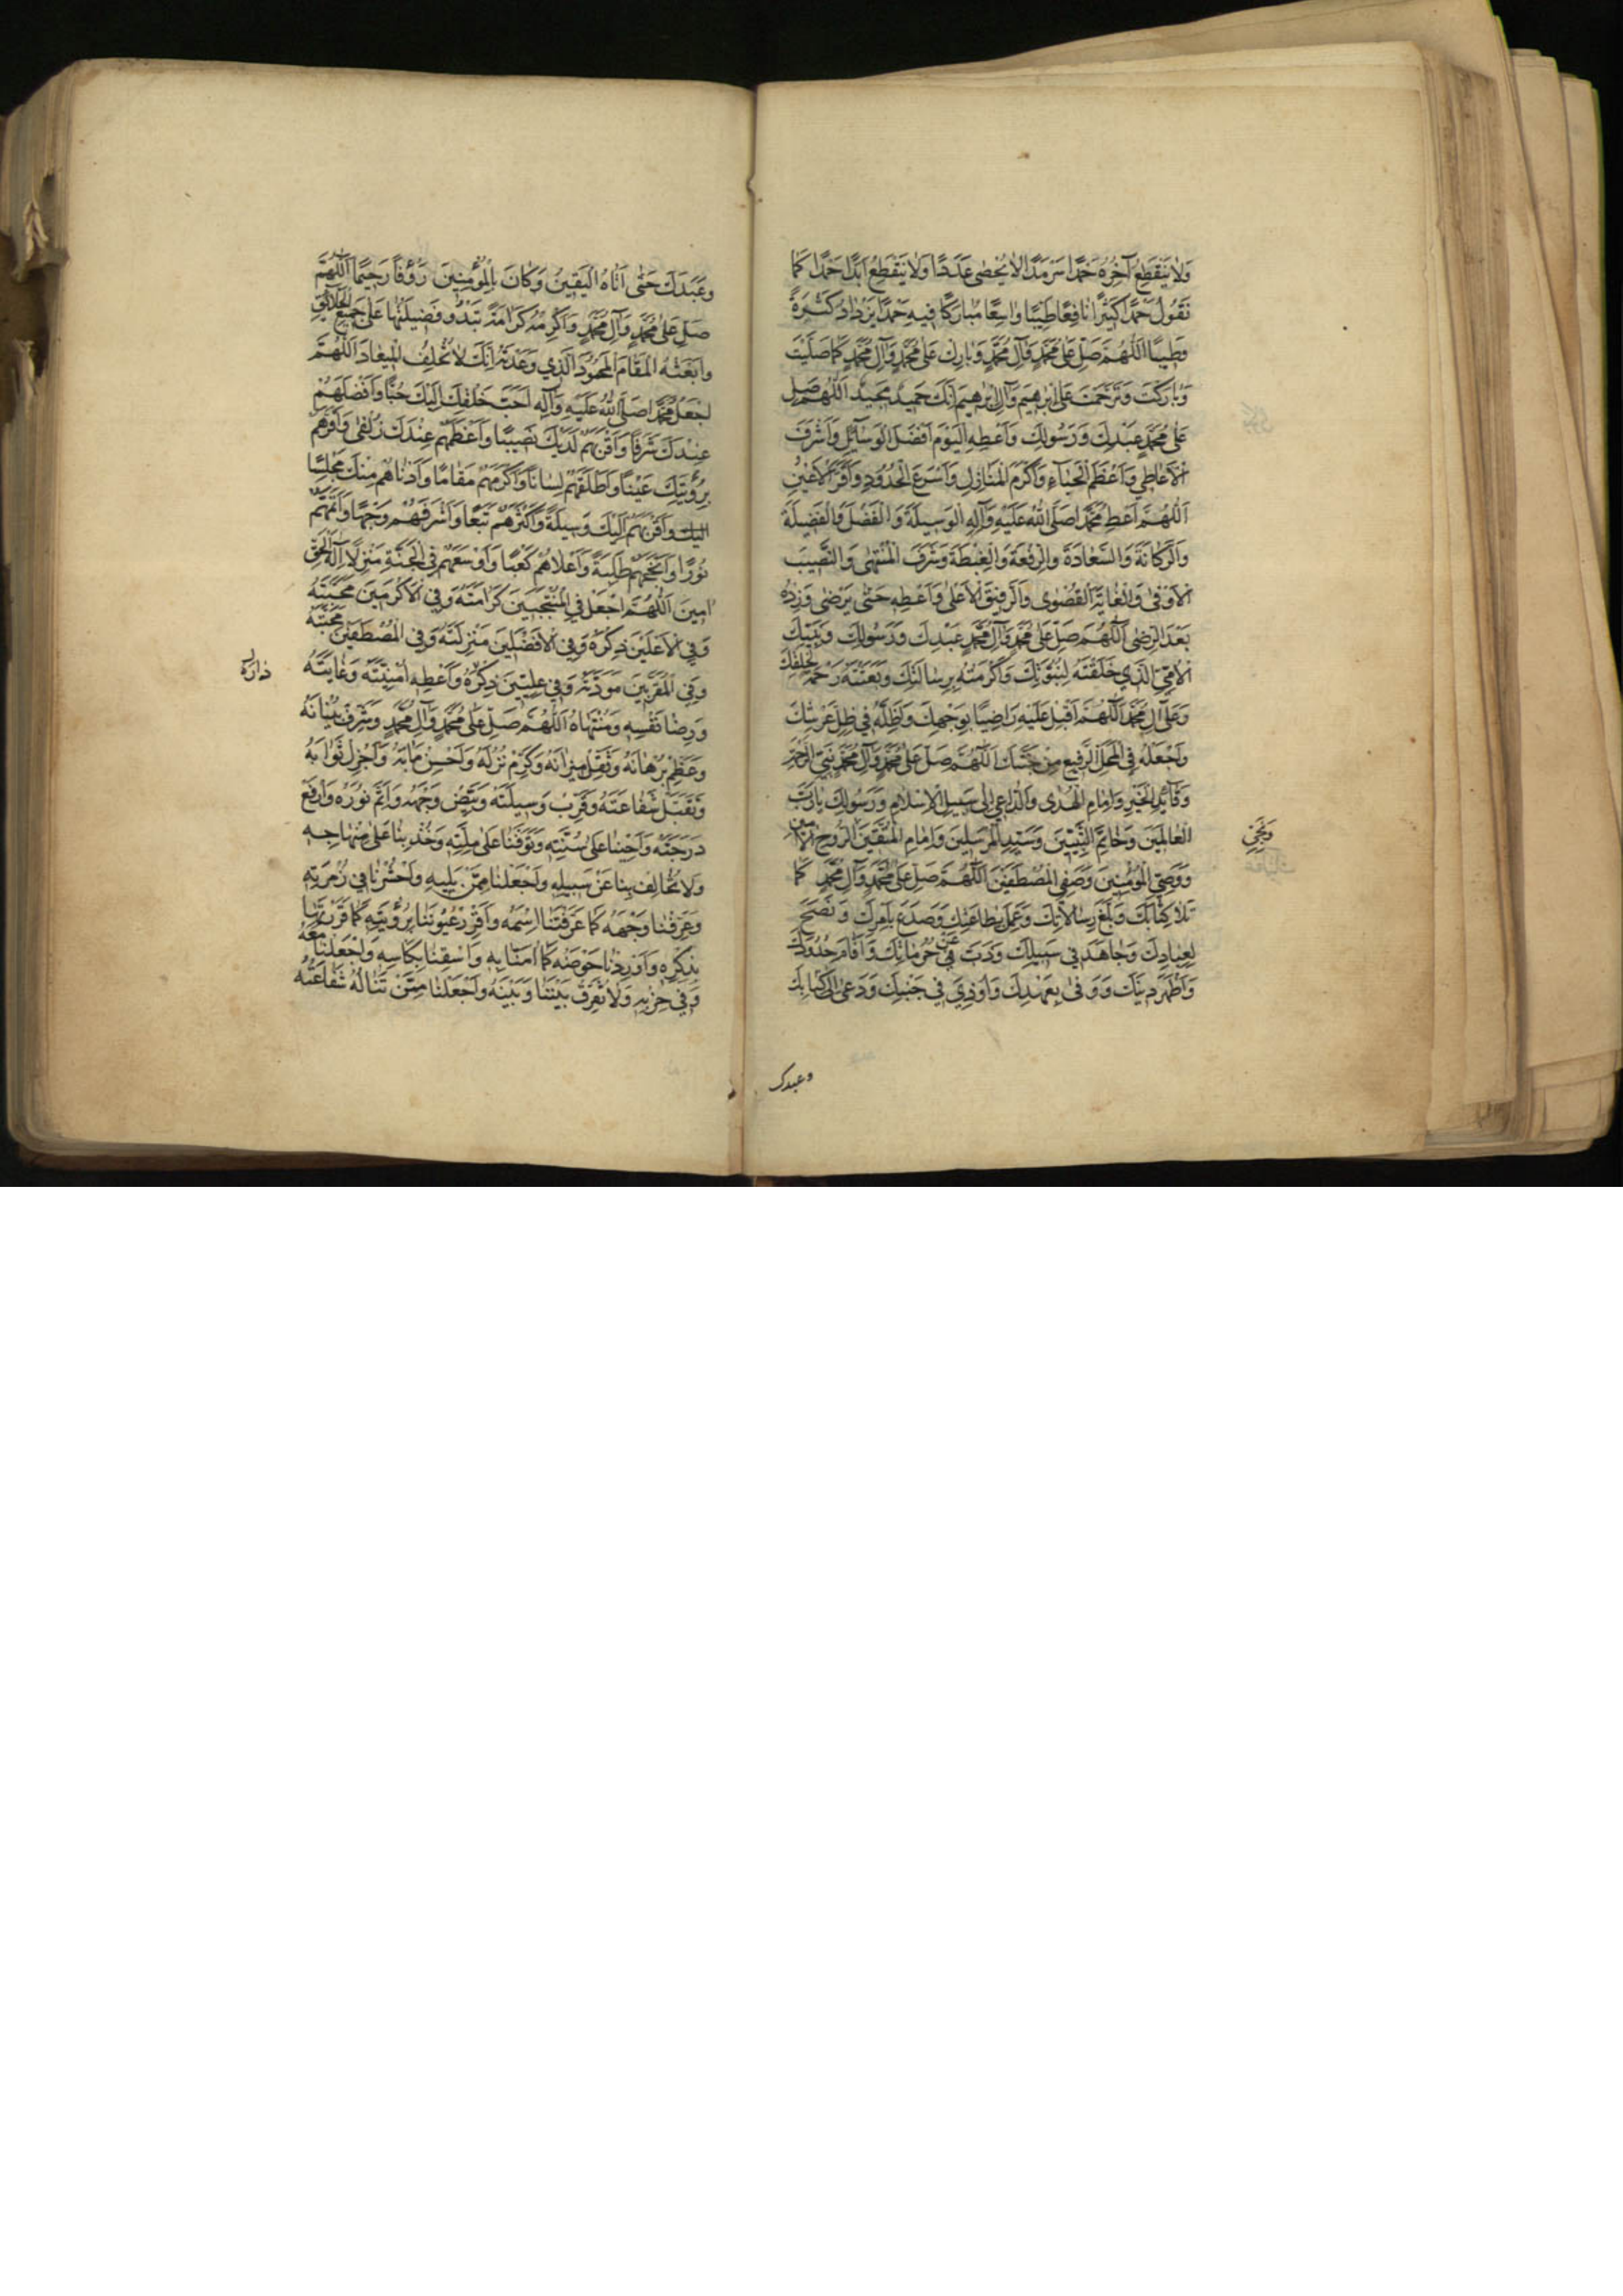 وَلَا يَنْقَطِعُ آخِرُهُ حَمْدًا سَرْمَدًا لَا يُحْصَى عَدَدًا وَلَا يَنْقَطِعُ أَبَدًا حَمْدًا كَمَا
نَقُولُ حَمْدًا كَثِيرًا نَافِعًا طَيِّبًا وَاسِعًا مُبَارَكًا فِيهِ حَمْدًا يَزْدَادُ كَثْرَةً
وَطِيبًا اَللّٰهُمَّ صَلِّ عَلَى مُحَمَّدٍ وَآلِ مُحَمَّدٍ وَبَارِكْ عَلَى مُحَمَّدٍ وَآلِ مُحَمَّدٍ كَمَا صَلَّيْتَ
وَبَارَكْتَ وَتَرَحَّمْتَ عَلَى اِبْرٰهِيمَ وَآلِ اِبْرٰهِيمَ اِنَّكَ حَمِيدٌ مَجِيدٌ اَللّٰهُمَّ صَلِّ
عَلَى مُحَمَّدٍ عَبْدِكَ وَرَسُولِكَ وَأَعْطِهِ الْيَوْمَ أَفْضَلَ الْوَسَائِلِ وَأَشْرَفَ
الْأَعَاطِي وَأَعْظَمَ الْحِبَاءِ وَأَكْرَمَ الْمَنَازِلِ وَأَسْرَعَ الْحُدُودِ وَأَقَرَّ الْأَعْيُنِ
اَللّٰهُمَّ أَعْطِ مُحَمَّدًا صَلَّى اللّٰهُ عَلَيْهِ وَآلِهِ الْوَسِيلَةَ وَالْفَضْلَ وَالْفَضِيلَةَ
وَالْمَكَانَةَ وَالسَّعَادَةَ وَالرِّفْعَةَ وَالْغِبْطَةَ وَشَرَفَ الْمُنْتَهَى وَالنَّصِيبَ
الْأَوْفَى وَالْغَايَةَ الْقُصْوَى وَالرَّفِيقَ الْأَعْلَى وَأَعْطِهِ حَتَّى يَرْضَى وَزِدْهُ
بَعْدَ الرِّضَى اَللّٰهُمَّ صَلِّ عَلَى مُحَمَّدٍ وَآلِ مُحَمَّدٍ عَبْدِكَ وَرَسُولِكَ وَنَبِيِّكَ
الْأُمِّيِّ الَّذِي خَلَقْتَهُ لِنُبُوَّتِكَ وَأَكْرَمْتَهُ بِرِسَالَتِكَ وَبَعَثْتَهُ رَحْمَةً لِخَلْقِكَ
وَعَلَى آلِ مُحَمَّدٍ اَللّٰهُمَّ أَقْبِلْ عَلَيْهِ رَاضِيًا بِوَجْهِكَ وَأَظِلَّهُ فِي ظِلِّ عَرْشِكَ
وَاجْعَلْهُ فِي الْمَحَلِّ الرَّفِيعِ مِنْ جَنَّتِكَ اَللّٰهُمَّ صَلِّ عَلَى مُحَمَّدٍ وَآلِ مُحَمَّدٍ نَبِيِّ الرَّحْمَةِ
وَقَائِدِ الْخَيْرِ وَإِمَامِ الْهُدَى وَالدَّاعِي إِلَى سَبِيلِ الْإِسْلَامِ وَرَسُولِكَ يَا رَبَّ
الْعَالَمِينَ وَخَاتَمِ النَّبِيِّينَ وَسَيِّدِ الْمُرْسَلِينَ وَإِمَامِ الْمُتَّقِينَ الرُّوحِ الْأَمِينِ
وَنَجِيِّ
وَوَصِيِّ الْمُؤْمِنِينَ وَصَفِيِّ الْمُصْطَفَيْنَ اَللّٰهُمَّ صَلِّ عَلَى مُحَمَّدٍ وَآلِ مُحَمَّدٍ كَمَا
تَلَا كِتَابَكَ وَبَلَّغَ رِسَالَاتِكَ وَعَمِلَ بِطَاعَتِكَ وَصَدَعَ بِأَمْرِكَ وَنَصَحَ
لِعِبَادِكَ وَجَاهَدَ فِي سَبِيلِكَ وَذَبَّ عَنْ حُرُمَاتِكَ وَأَقَامَ حُدُودَكَ
وَأَظْهَرَ دِينَكَ وَوَفَى بِعَهْدِكَ وَأُوذِيَ فِي جَنْبِكَ وَدَعَى إِلَى كِتَابِكَ
وعبدك
وَعَبَدَكَ حَتَّى أَتَاهُ الْيَقِينُ وَكَانَ بِالْمُؤْمِنِينَ رَؤُفًا رَحِيمًا اَللّٰهُمَّ
صَلِّ عَلَى مُحَمَّدٍ وَآلِ مُحَمَّدٍ وَأَكْرِمْهُ كَرَامَةً تَبْدُو فَضِيلَتُهَا عَلَى جَمِيعِ الْخَلَائِقِ
وَابْعَثْهُ الْمَقَامَ الْمَحْمُودَ الَّذِي وَعَدْتَهُ إِنَّكَ لَا تُخْلِفُ الْمِيعَادَ اَللّٰهُمَّ
اجْعَلْ مُحَمَّدًا صَلَّى اللّٰهُ عَلَيْهِ وَآلِهِ أَحَبَّ خَلْقِكَ إِلَيْكَ حُبًّا وَأَفْضَلَهُمْ
عِنْدَكَ شَرَفًا وَأَقْرَبَهُمْ لَدَيْكَ نَصِيبًا وَأَعْظَمَهُمْ عِنْدَكَ زُلْفَى وَأَقَرَّهُمْ
بِرُؤْيَتِكَ عَيْنًا وَأَطْلَقَهُمْ لِسَانًا وَأَكْرَمَهُمْ مَقَامًا وَأَدْنَاهُمْ مِنْكَ مَجْلِسًا
إِلَيْكَ وَأَقْرَبَهُمْ إِلَيْكَ وَسِيلَةً وَأَكْثَرَهُمْ تَبَعًا وَأَشْرَفَهُمْ وَجْهًا وَأَتَمَّهُمْ
نُورًا وَأَنْجَحَهُمْ طَلِبَةً وَأَعْلَاهُمْ كَعْبًا وَأَوْسَعَهُمْ فِي الْجَنَّةِ مَنْزِلًا إِلٰهَ الْحَقِّ
اٰمِينَ اَللّٰهُمَّ اجْعَلْ فِي الْمُنْتَجَبِينَ كَرَامَتَهُ وَفِي الْأَكْرَمِينَ مَحَبَّتَهُ
وَفِي الْأَعْلَيْنَ ذِكْرَهُ وَفِي الْأَفْضَلِينَ مَنْزِلَتَهُ وَفِي الْمُصْطَفَيْنَ مَحَبَّتَهُ
وَفِي الْمُقَرَّبِينَ مَوَدَّتَهُ وَفِي عِلِّيِّينَ ذِكْرَهُ وَأَعْطِهِ أُمْنِيَّتَهُ وَغَايَتَهُ
دَارَهُ
وَرِضَا نَفْسِهِ وَمُنْتَهَاهُ اَللّٰهُمَّ صَلِّ عَلَى مُحَمَّدٍ وَآلِ مُحَمَّدٍ وَشَرِّفْ بُنْيَانَهُ
وَعَظِّمْ بُرْهَانَهُ وَثَقِّلْ مِيزَانَهُ وَكَرِّمْ نُزُلَهُ وَأَحْسِنْ مَآبَهُ وَأَجْزِلْ ثَوَابَهُ
وَتَقَبَّلْ شَفَاعَتَهُ وَقَرِّبْ وَسِيلَتَهُ وَبَيِّضْ وَجْهَهُ وَأَتِمَّ نُورَهُ وَارْفَعْ
دَرَجَتَهُ وَأَحْيِنَا عَلَى سُنَّتِهِ وَتَوَفَّنَا عَلَى مِلَّتِهِ وَخُذْ بِنَا عَلَى مِنْهَاجِهِ
وَلَا تُخَالِفْ بِنَا عَنْ سَبِيلِهِ وَاجْعَلْنَا مِمَّنْ يَلِيهِ وَاحْشُرْنَا فِي زُمْرَتِهِ
وَعَرِّفْنَا وَجْهَهُ كَمَا عَرَّفْتَنَا اسْمَهُ وَأَقْرِرْ عُيُونَنَا بِرُؤْيَتِهِ كَمَا أَقْرَرْتَهَا
بِذِكْرِهِ وَأَوْرِدْنَا حَوْضَهُ كَمَا اٰمَنَّا بِهِ وَاسْقِنَا بِكَأْسِهِ وَاجْعَلْنَا مَعَهُ
وَفِي حِزْبِهِ وَلَا تُفَرِّقْ بَيْنَنَا وَبَيْنَهُ وَاجْعَلْنَا مِمَّنْ تَنَالُهُ شَفَاعَتُهُ